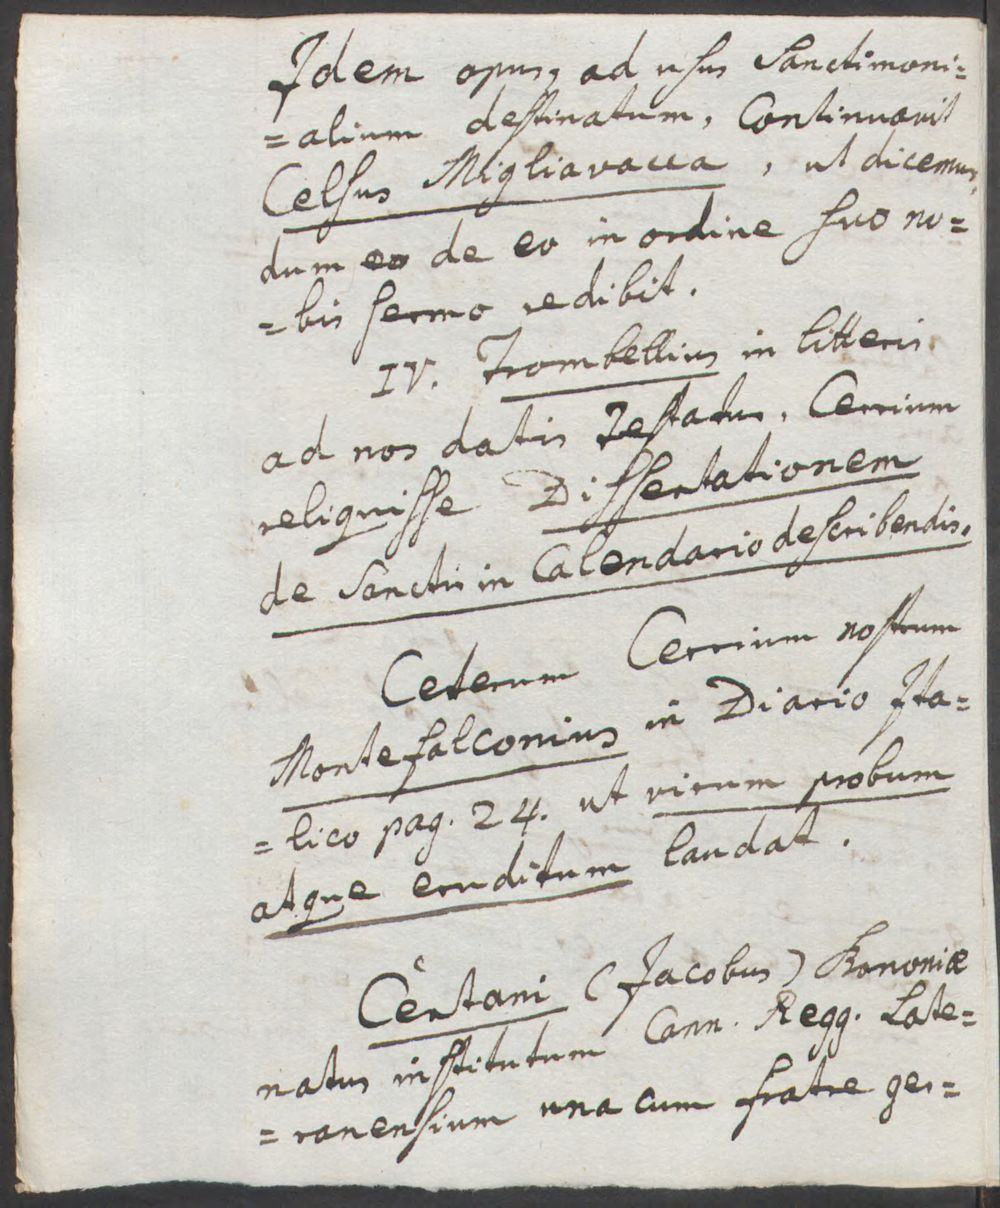 Idem opus, ad usus Sanctimoni=
=alium destinatum, Continuavit
Celsus Migliavacca, ut dicemus,
dum eo de eo in ordine suo no=
=bis sermo redibit.
IV. Trombellius in litteris
ad nos datis Testatus, Cerrium
reliquisse Dissertationem
de Sanctis in Calendario describendis.
Ceterum Cerrium nostrum
Montefalconius in Diario Ita=
=lico pag. 24. ut virum probum
atque eruditum laudat.
Certani (Jacobus) Bononiæ
natus institutum Cann. Regg. Late=
=ranensium una cum fratre ger=